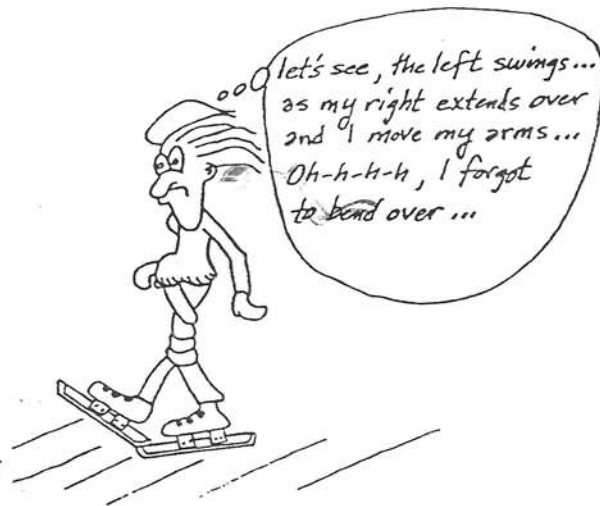 let's see, the left swings...
as my right extends over
and I move my arms...
Oh-h-h-h, I forgot
to bend over...